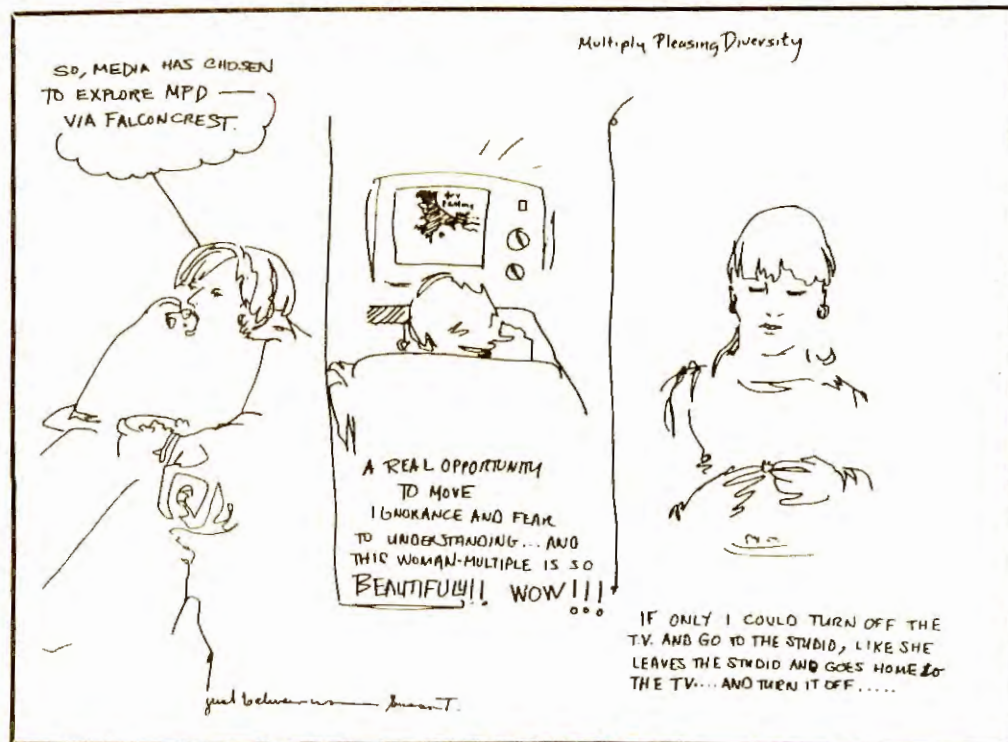 Multiply Pleasing Diversity
SO, MEDIA HAS CHOSEN
TO EXPLORE MPD —
VIA FALCONCREST.
A REAL OPPORTUNITY
TO MOVE
IGNORANCE AND FEAR
TO UNDERSTANDING... AND
THIS WOMAN-MULTIPLE IS SO
BEAUTIFUL!!! WOW!!!
IF ONLY I COULD TURN OFF THE
T.V. AND GO TO THE STUDIO, LIKE SHE
LEAVES THE STUDIO AND GOES HOME to
THE TV.... AND TURN IT OFF.....
just between us — Susan T.